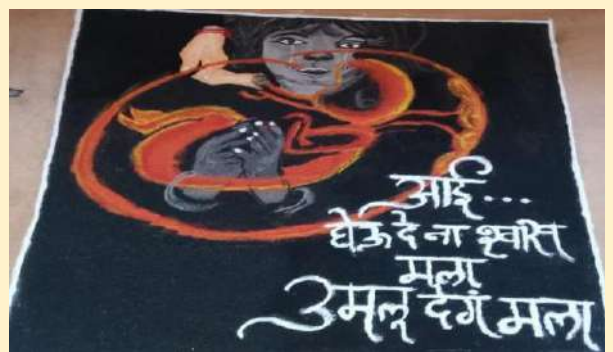 आई...
घेऊ दे ना श्वास
मला
उमलू देगं मला